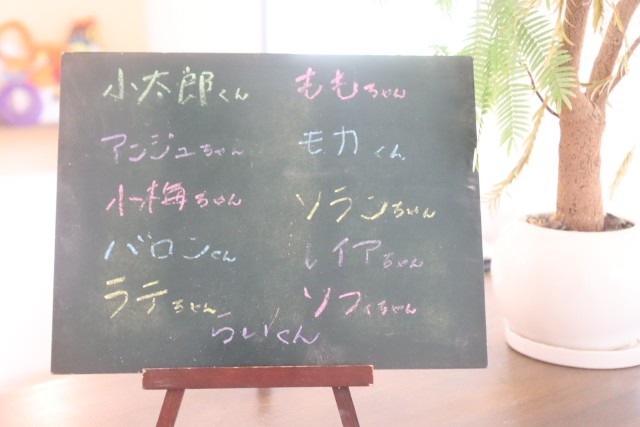 小太郎くん
ももちゃん
アンジュちゃん
モカくん
小梅ちゃん
ソランちゃん
バロンくん
レイアちゃん
ラテちゃん
ソフィちゃん
らいくん